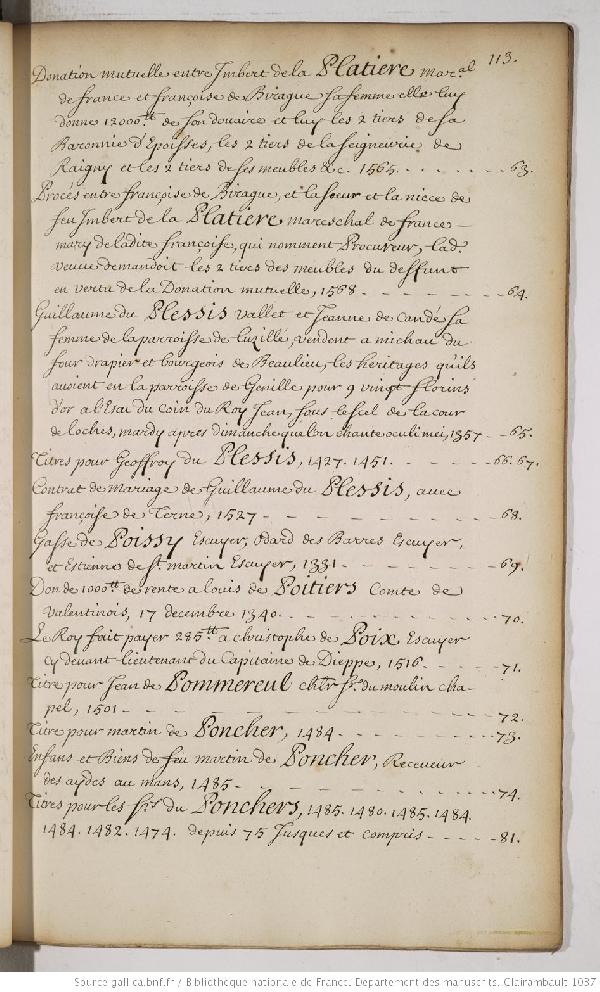 113.
Donation mutuelle entre Imbert de la Platiere mar.al
de france et françoise de Birague sa femme elle luy
donne 12000.tt de son douaire et luy les 2 tiers de sa
Baronnie d'Epoisses, les 2 tiers de la seigneurie de
Raigny et les 2 tiers de ses meubles &c. 1565. - - - - - - 63.
Procés entre françoise de Birague, et la soeur et la niece de
feu Imbert de la Platiere mareschal de france -
mary de ladite françoise, qui nomment Procureur, lad.
veuve demandoit les 2 tiers des meubles du deffunt
en vertu de la Donation mutuelle, 1568. - - - - - - 64.
Guillaume du Plessis vallet et Jeanne de Candé sa
femme de la parroisse de Luzillé, vendent a michau du
four drapier et bourgeois de Beaulieu, les heritages qu'ils
avoient en la parroisse de Genille pour 9 vingt florins
d'or a l'Escu du coin du Roy Jean, sous le scel de la cour
de loches, mardy apres dimanche que l'on chante oculi mei, 1357 - - 65.
Titres pour Geoffroy du Plessis, 1427. 1451. - - - - - - 66. 67.
Contrat de Mariage de Guillaume du Plessis, avec
françoise de Terne, 1527 - - - - - - - - - 68.
Gasse de Poissy Escuyer, Odard des Barres Escuyer,
et Estienne de st. martin Escuyer, 1331 - - - - - - 69.
Don de 1000tt de rente a louis de Poitiers Comte de
Valentinois, 17 decembre 1340. - - - - - - - - 70.
Le Roy fait payer 285tt a christophe de Poix Escuyer
cy devant lieutenant du Capitaine de Dieppe, 1516 - - - - 71.
Titre pour Jean de Pommereul chlr sr. du moulin cha-
pel, 1501 - - - - - - - - - - 72.
Titre pour martin de Poncher, 1484 - - - - - - - 73.
Enfans et Biens de feu martin de Poncher, Receveur
des aydes au mans, 1485 - - - - - - - - 74.
Titres pour les srs. du Ponchers, 1485. 1480. 1485. 1484.
1484. 1482. 1474. depuis 75 Jusques et compris - - - - - 81.
Source gallica.bnf.fr / Bibliothèque nationale de France. Département des manuscrits. Clairambault 1037